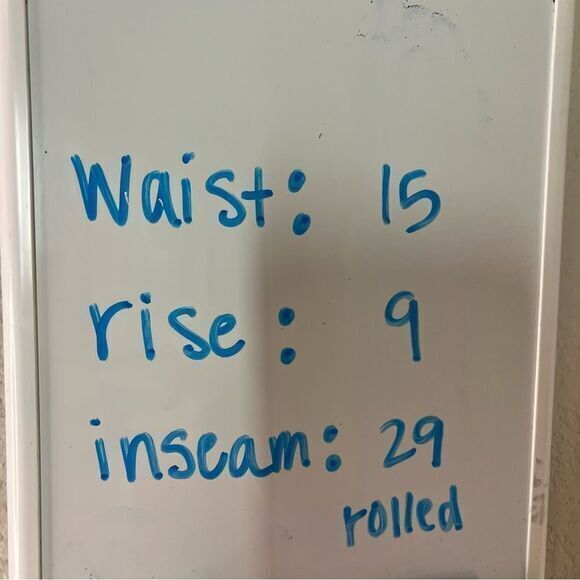 Waist: 15
rise: 9
inseam: 29
rolled